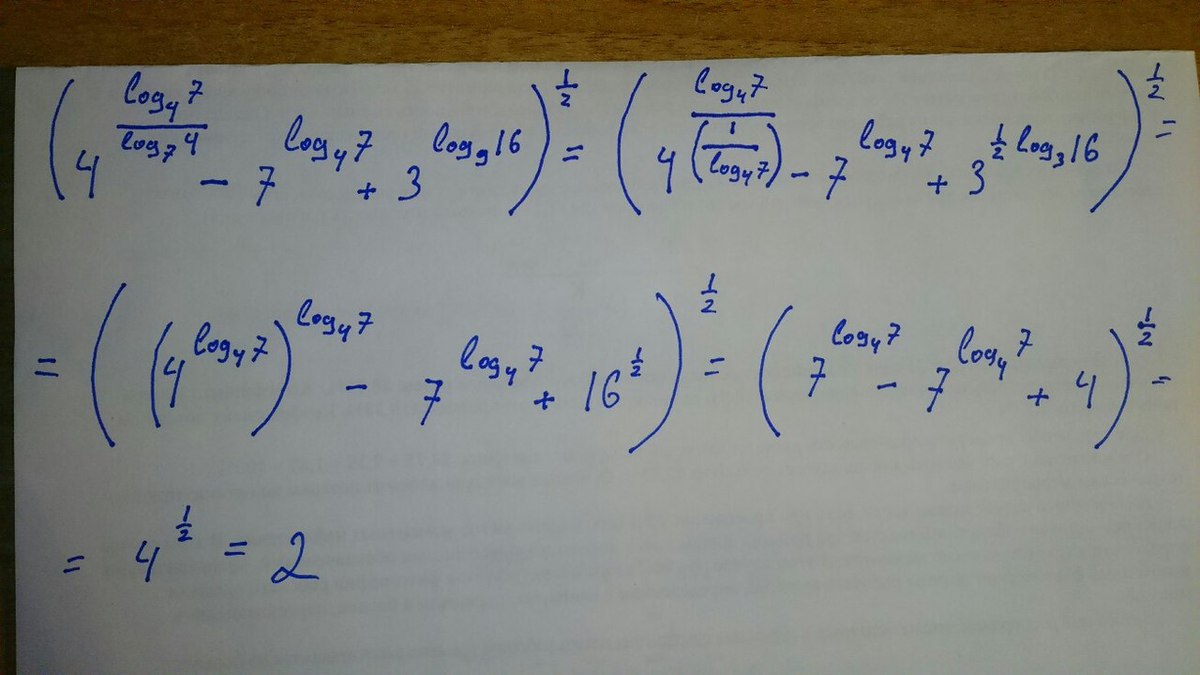 (4^(log₄7/log₇4) - 7^(log₄7) + 3^(log₉16))^(1/2) = (4^(log₄7/(1/log₄7)) - 7^(log₄7) + 3^(1/2 log₃16))^(1/2) =
= ((4^(log₄7))^(log₄7) - 7^(log₄7) + 16^(1/2))^(1/2) = (7^(log₄7) - 7^(log₄7) + 4)^(1/2) =
= 4^(1/2) = 2